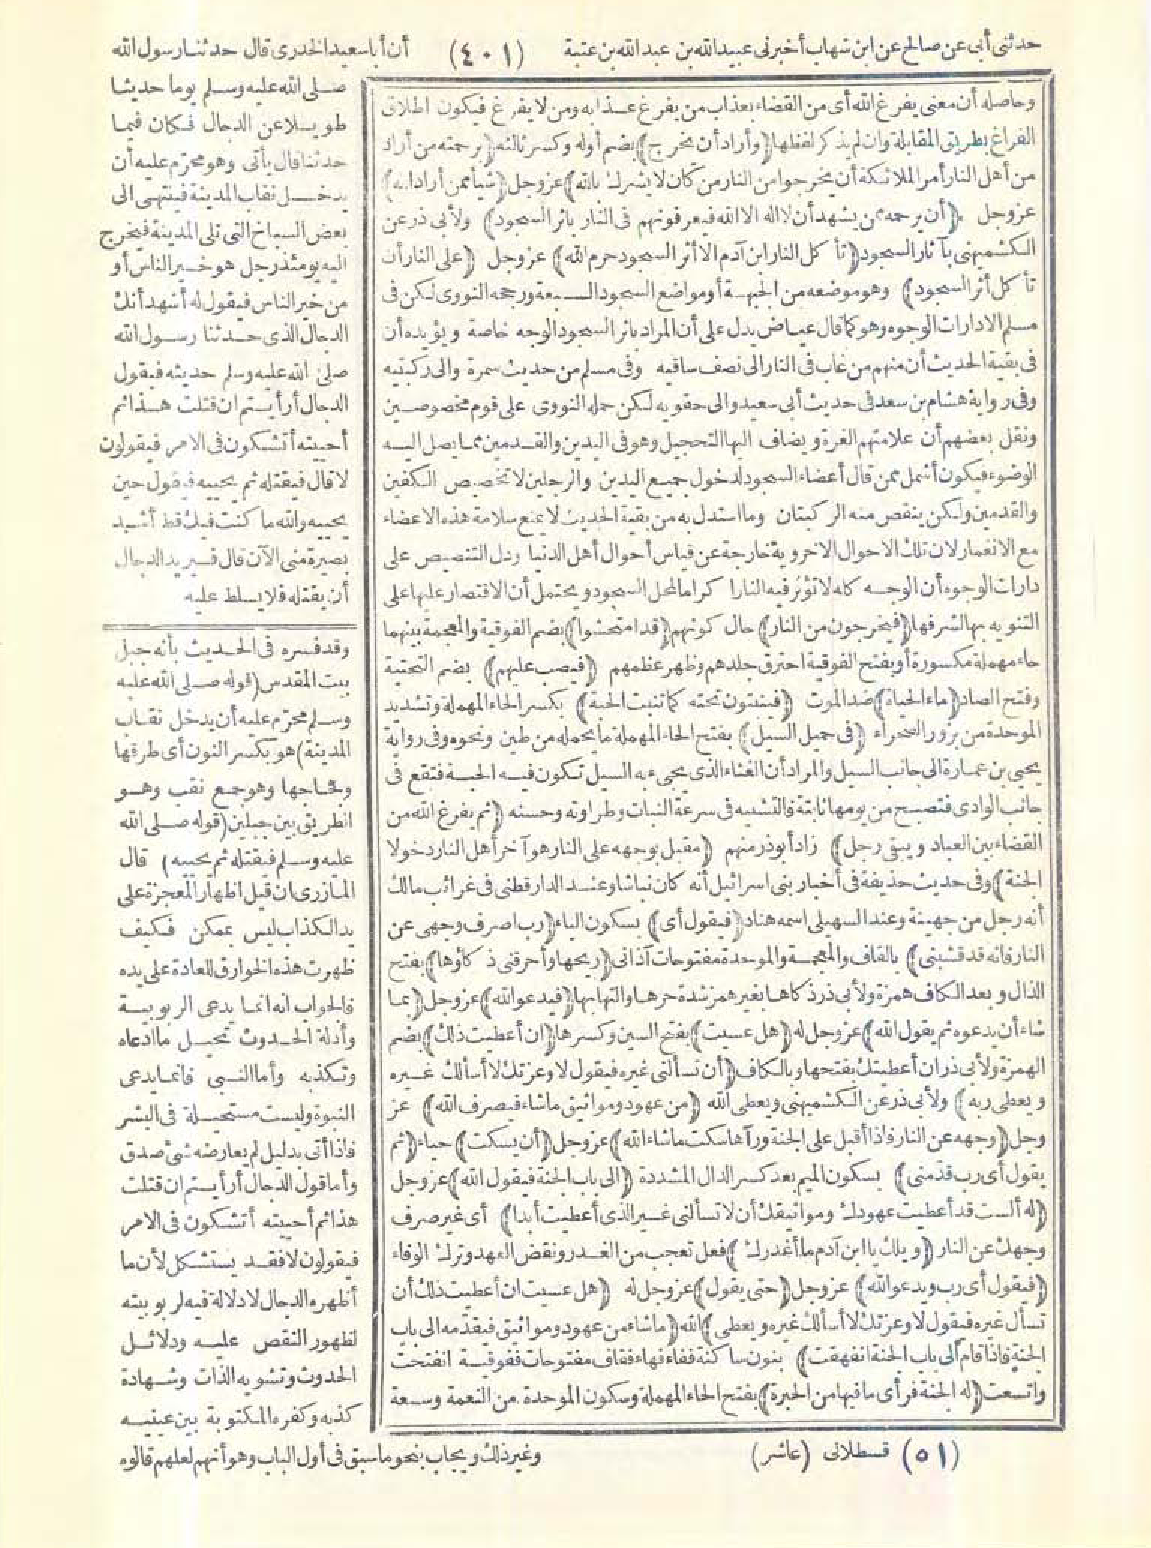 حدثنى أبى عن صالح عن ابن شهاب أخبرنى عبيدالله بن عبدالله بن عتبة (٤٠١) أن أباسعيد الخدرى قال حدثنا رسول الله
صلى الله عليه وسلم يوما حديثا
طويلا عن الدجال فكان فيما
حدثنا قال يأتى وهو محرّم عليه أن
يدخل نقاب المدينة فينتهى الى
بعض السباخ التى تلى المدينة فيخرج
اليه يومئذ رجل هو خير الناس أو
من خير الناس فيقول له أشهد أنك
الدجال الذى حدثنا رسول الله
صلى الله عليه وسلم حديثه فيقول
الدجال أرأيتم ان قتلت هذا ثم
أحييته أتشكون فى الامر فيقولون
لا قال فيقتله ثم يحييه فيقول حين
يحييه والله ما كنت فيك قط أشد
بصيرة منى الآن قال فيريد الدجال
أن يقتله فلا يسلط عليه
وقد فسره فى الحديث بأنه جبل
بيت المقدس (قوله صلى الله عليه
وسلم محرّم عليه أن يدخل نقاب
المدينة) هو بكسر النون أى طرقها
وفجاجها وهو جمع نقب وهو
الطريق بين جبلين (قوله صلى الله
عليه وسلم فيقتله ثم يحييه) قال
المازرى ان قيل اظهار المعجزة على
يد الكذاب ليس بممكن فكيف
ظهرت هذه الخوارق للعادة على يده
فالجواب انه انما يدعى الربوبية
وأدلة الحدوث تحيل ما ادعاه
وتكذبه وأما النبى فانما يدعى
النبوة وليست مستحيلة فى البشر
فاذا أتى بدليل لم يعارضه شئ صدق
وأما قول الدجال أرأيتم ان قتلت
هذا ثم أحييته أتشكون فى الامر
فيقولون لا فقد يستشكل لأن ما
أظهره الدجال لا دلالة فيه لربوبيته
لظهور النقص عليه ودلائل
الحدوث وتشويه الذات وشهادة
كذبه وكفره المكتوبة بين عينيه
وغير ذلك ويجاب بنحو ما سبق فى أول الباب وهو أنهم لعلهم قالوه
وحاصله أن معنى يفرغ الله أى من القضاء بعذاب من يفرغ عذابه ومن لا يفرغ فيكون اطلاق
الفراغ بطريق المقابلة وان لم يذكر لفظها (وأراد أن يخرج) بضم أوله وكسر ثالثه (برحمته من أراد
من أهل النار أمر الملائكة أن يخرجوا من النار من كان لا يشرك بالله) عزوجل (شيأ ممن أراد الله)
عزوجل (أن يرحمه ممن يشهد أن لا اله الا الله فيعرفونهم فى النار بأثر السجود) ولأبى ذر عن
الكشميهنى بآثار السجود (تأكل النار ابن آدم الا أثر السجود حرم الله) عزوجل (على النار أن
تأكل أثر السجود) وهو موضعه من الجبهة أو مواضع السجود السبعة ورجحه النووى لكن فى
مسلم الا دارات الوجوه وهو كما قال عياض يدل على أن المراد بأثر السجود الوجه خاصة ويؤيده أن
فى بقية الحديث أن منهم من غاب فى النار الى نصف ساقيه وفى مسلم من حديث سمرة والى ركبتيه
وفى رواية هشام بن سعد فى حديث أبى سعيد والى حقويه لكن حمله النووى على قوم مخصوصين
ونقل بعضهم أن علامتهم الغرة ويضاف اليها التحجيل وهو فى اليدين والقدمين مما يصل اليه
الوضوء فيكون أشمل ممن قال أعضاء السجود لدخول جميع اليدين والرجلين لا تخصيص الكفين
والقدمين ولكن ينقص منه الركبتان وما استدل به من بقية الحديث لا يمنع سلامة هذه الاعضاء
مع الانغمار لان تلك الاحوال الاخروية خارجة عن قياس أحوال أهل الدنيا ودل التنصيص على
دارات الوجوه أن الوجه كله لا تؤثر فيه النار اكراما لمحل السجود ويحتمل أن الاقتصار عليها على
التنويه بها لشرفها (فيخرجون من النار) حال كونهم (قد امتحشوا) بضم الفوقية والمعجمة بينهما
حاء مهملة مكسورة أو بفتح الفوقية احترق جلدهم وظهر عظمهم (فيصب عليهم) بضم التحتية
وفتح الصاد (ماء الحياة) ضد الموت (فينبتون تحته كما تنبت الحبة) بكسر الحاء المهملة وتشديد
الموحدة من بزور الصحراء (فى حميل السيل) بفتح الحاء المهملة ما يحمله من طين ونحوه وفى رواية
يحيى بن عمارة الى جانب السيل والمراد أن الغثاء الذى يجىء به السيل تكون فيه الحبة فتقع فى
جانب الوادى فتصبح من يومها نابتة فالتشبيه فى سرعة النبات وطراوته وحسنه (ثم يفرغ الله من
القضاء بين العباد ويبقى رجل) زاد أبو ذر منهم (مقبل بوجهه على النار هو آخر أهل النار دخولا
الجنة) وفى حديث حذيفة فى أخبار بنى اسرائيل أنه كان نباشا وعند الدارقطنى فى غرائب مالك
أنه رجل من جهينة وعند السهيلى اسمه هناد (فيقول أى) بسكون الياء (رب اصرف وجهى عن
النار فانه قد قشبنى) بالقاف والمعجمة والموحدة مفتوحات آذانى (ريحها وأحرقنى ذكاؤها) بفتح
الذال وبعد الكاف همزة ولأبى ذر ذكاها بغير همز شدة حرها والتهابها (فيدعو الله) عزوجل (بما
شاء أن يدعوه ثم يقول الله) عزوجل له (هل عسيت) بفتح السين وكسرها (ان أعطيت ذلك) بضم
الهمزة ولأبى ذر ان أعطيتك بفتحها وبالكاف (أن تسألنى غيره فيقول لا وعزتك لا أسألك غيره
ويعطى ربه) ولأبى ذر عن الكشميهنى ويعطى الله (من عهود ومواثيق ما شاء فيصرف الله) عز
وجل (وجهه عن النار فاذا أقبل على الجنة ورآها سكت ما شاء الله) عزوجل (أن يسكت) حياء (ثم
يقول أى رب قدّمنى) بسكون الميم بعد كسر الدال المشددة (الى باب الجنة فيقول الله) عزوجل
(له ألست قد أعطيت عهودك ومواثيقك أن لا تسألنى غير الذى أعطيت أبدا) أى غير صرف
وجهك عن النار (ويلك يا ابن آدم ما أغدرك) فعل تعجب من الغدر ونقض العهد وترك الوفاء
(فيقول أى رب ويدعو الله) عزوجل (حتى يقول) عزوجل له (هل عسيت ان أعطيت ذلك أن
تسأل غيره فيقول لا وعزتك لا أسألك غيره ويعطى) الله (ما شاء من عهود ومواثيق فيقدّمه الى باب
الجنة فاذا قام الى باب الجنة انفهقت) بنون ساكنة ففاء فهاء فقاف مفتوحات ففوقية انفتحت
واتسعت (له الجنة فرأى ما فيها من الحبرة) بفتح الحاء المهملة وسكون الموحدة من النعمة وسعة
(٥١) قسطلانى (عاشر)